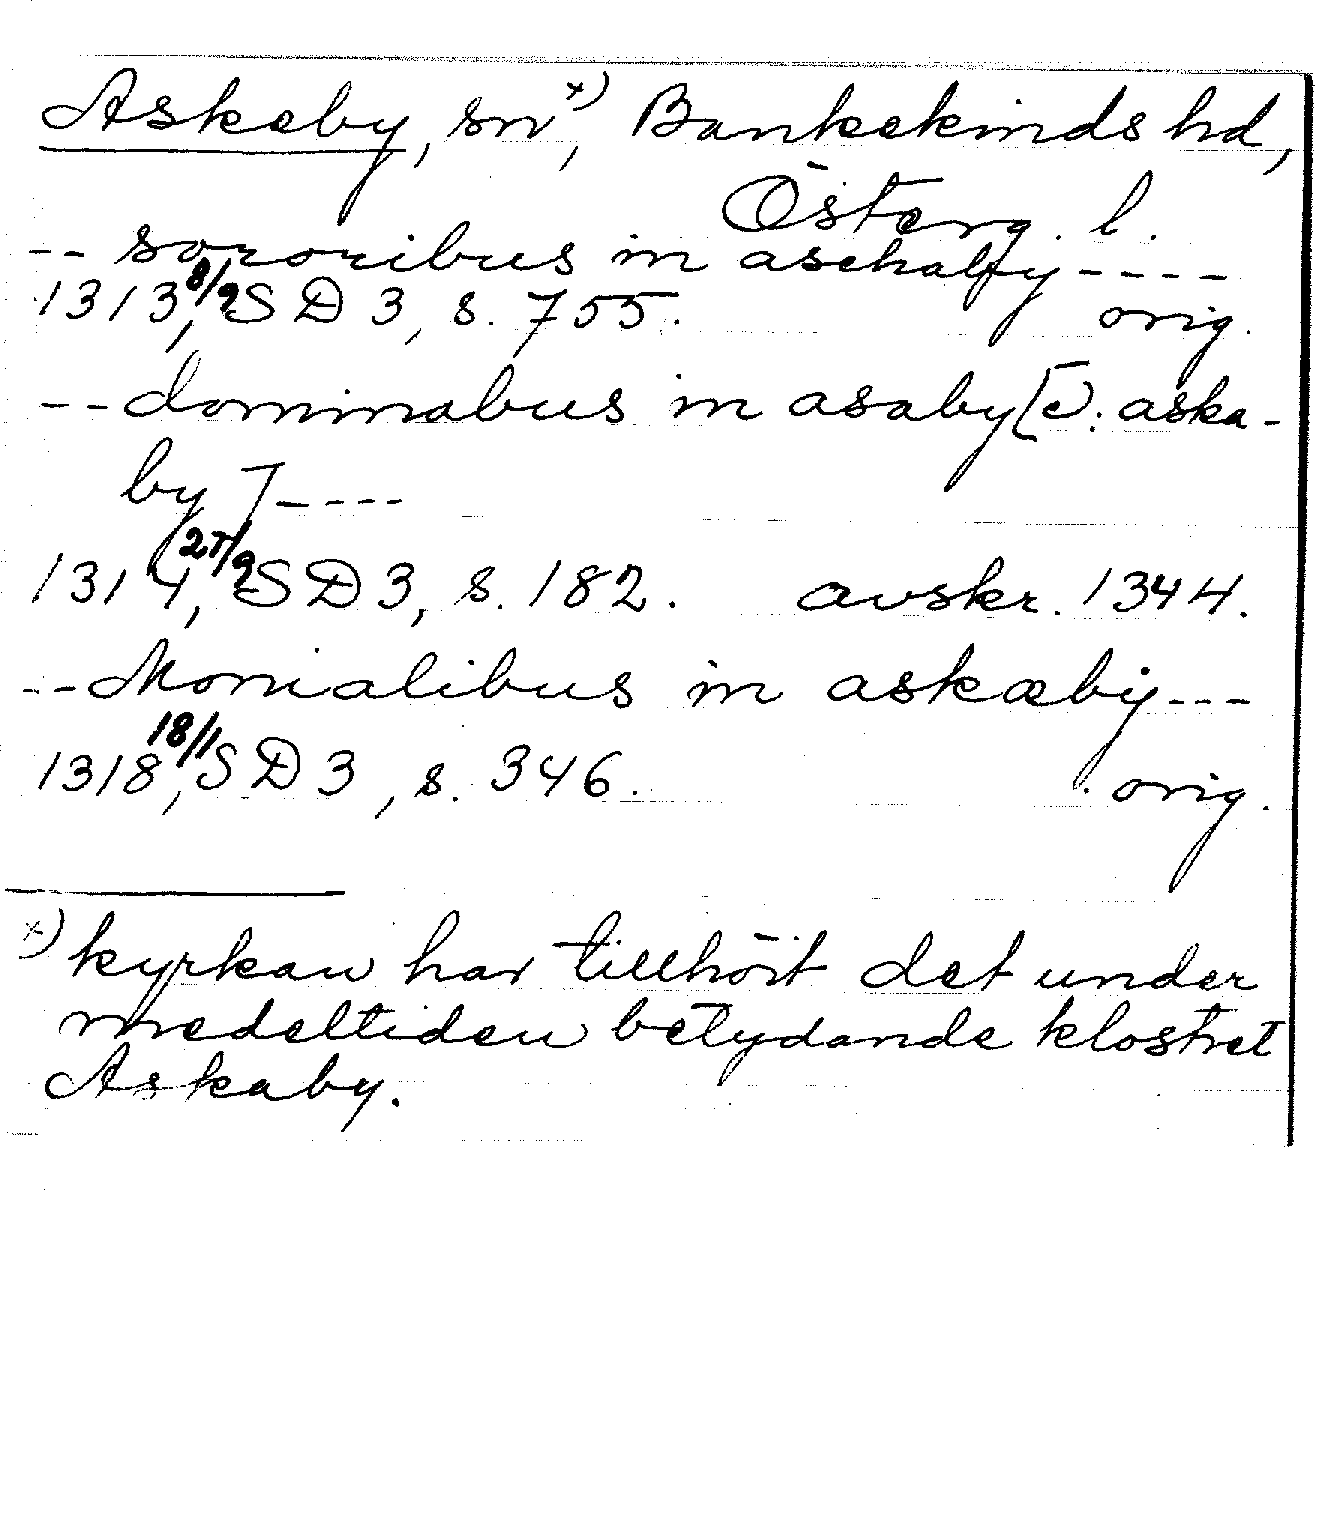 Askeby, sn x), Bankekinds hd,
Österg. l.
-- sororibus in aschaby ----
1313 8/9, SD 3, s. 755. orig.
-- dominabus in asaby [ɔ: aska-
by] ----
1314, 27/9 SD 3, s. 182. avskr. 1344.
-- Monialibus in askæby ---
1318 18/1, SD 3, s. 346. orig.
x) kyrkan har tillhört det under
medeltiden betydande klostret
Askaby.